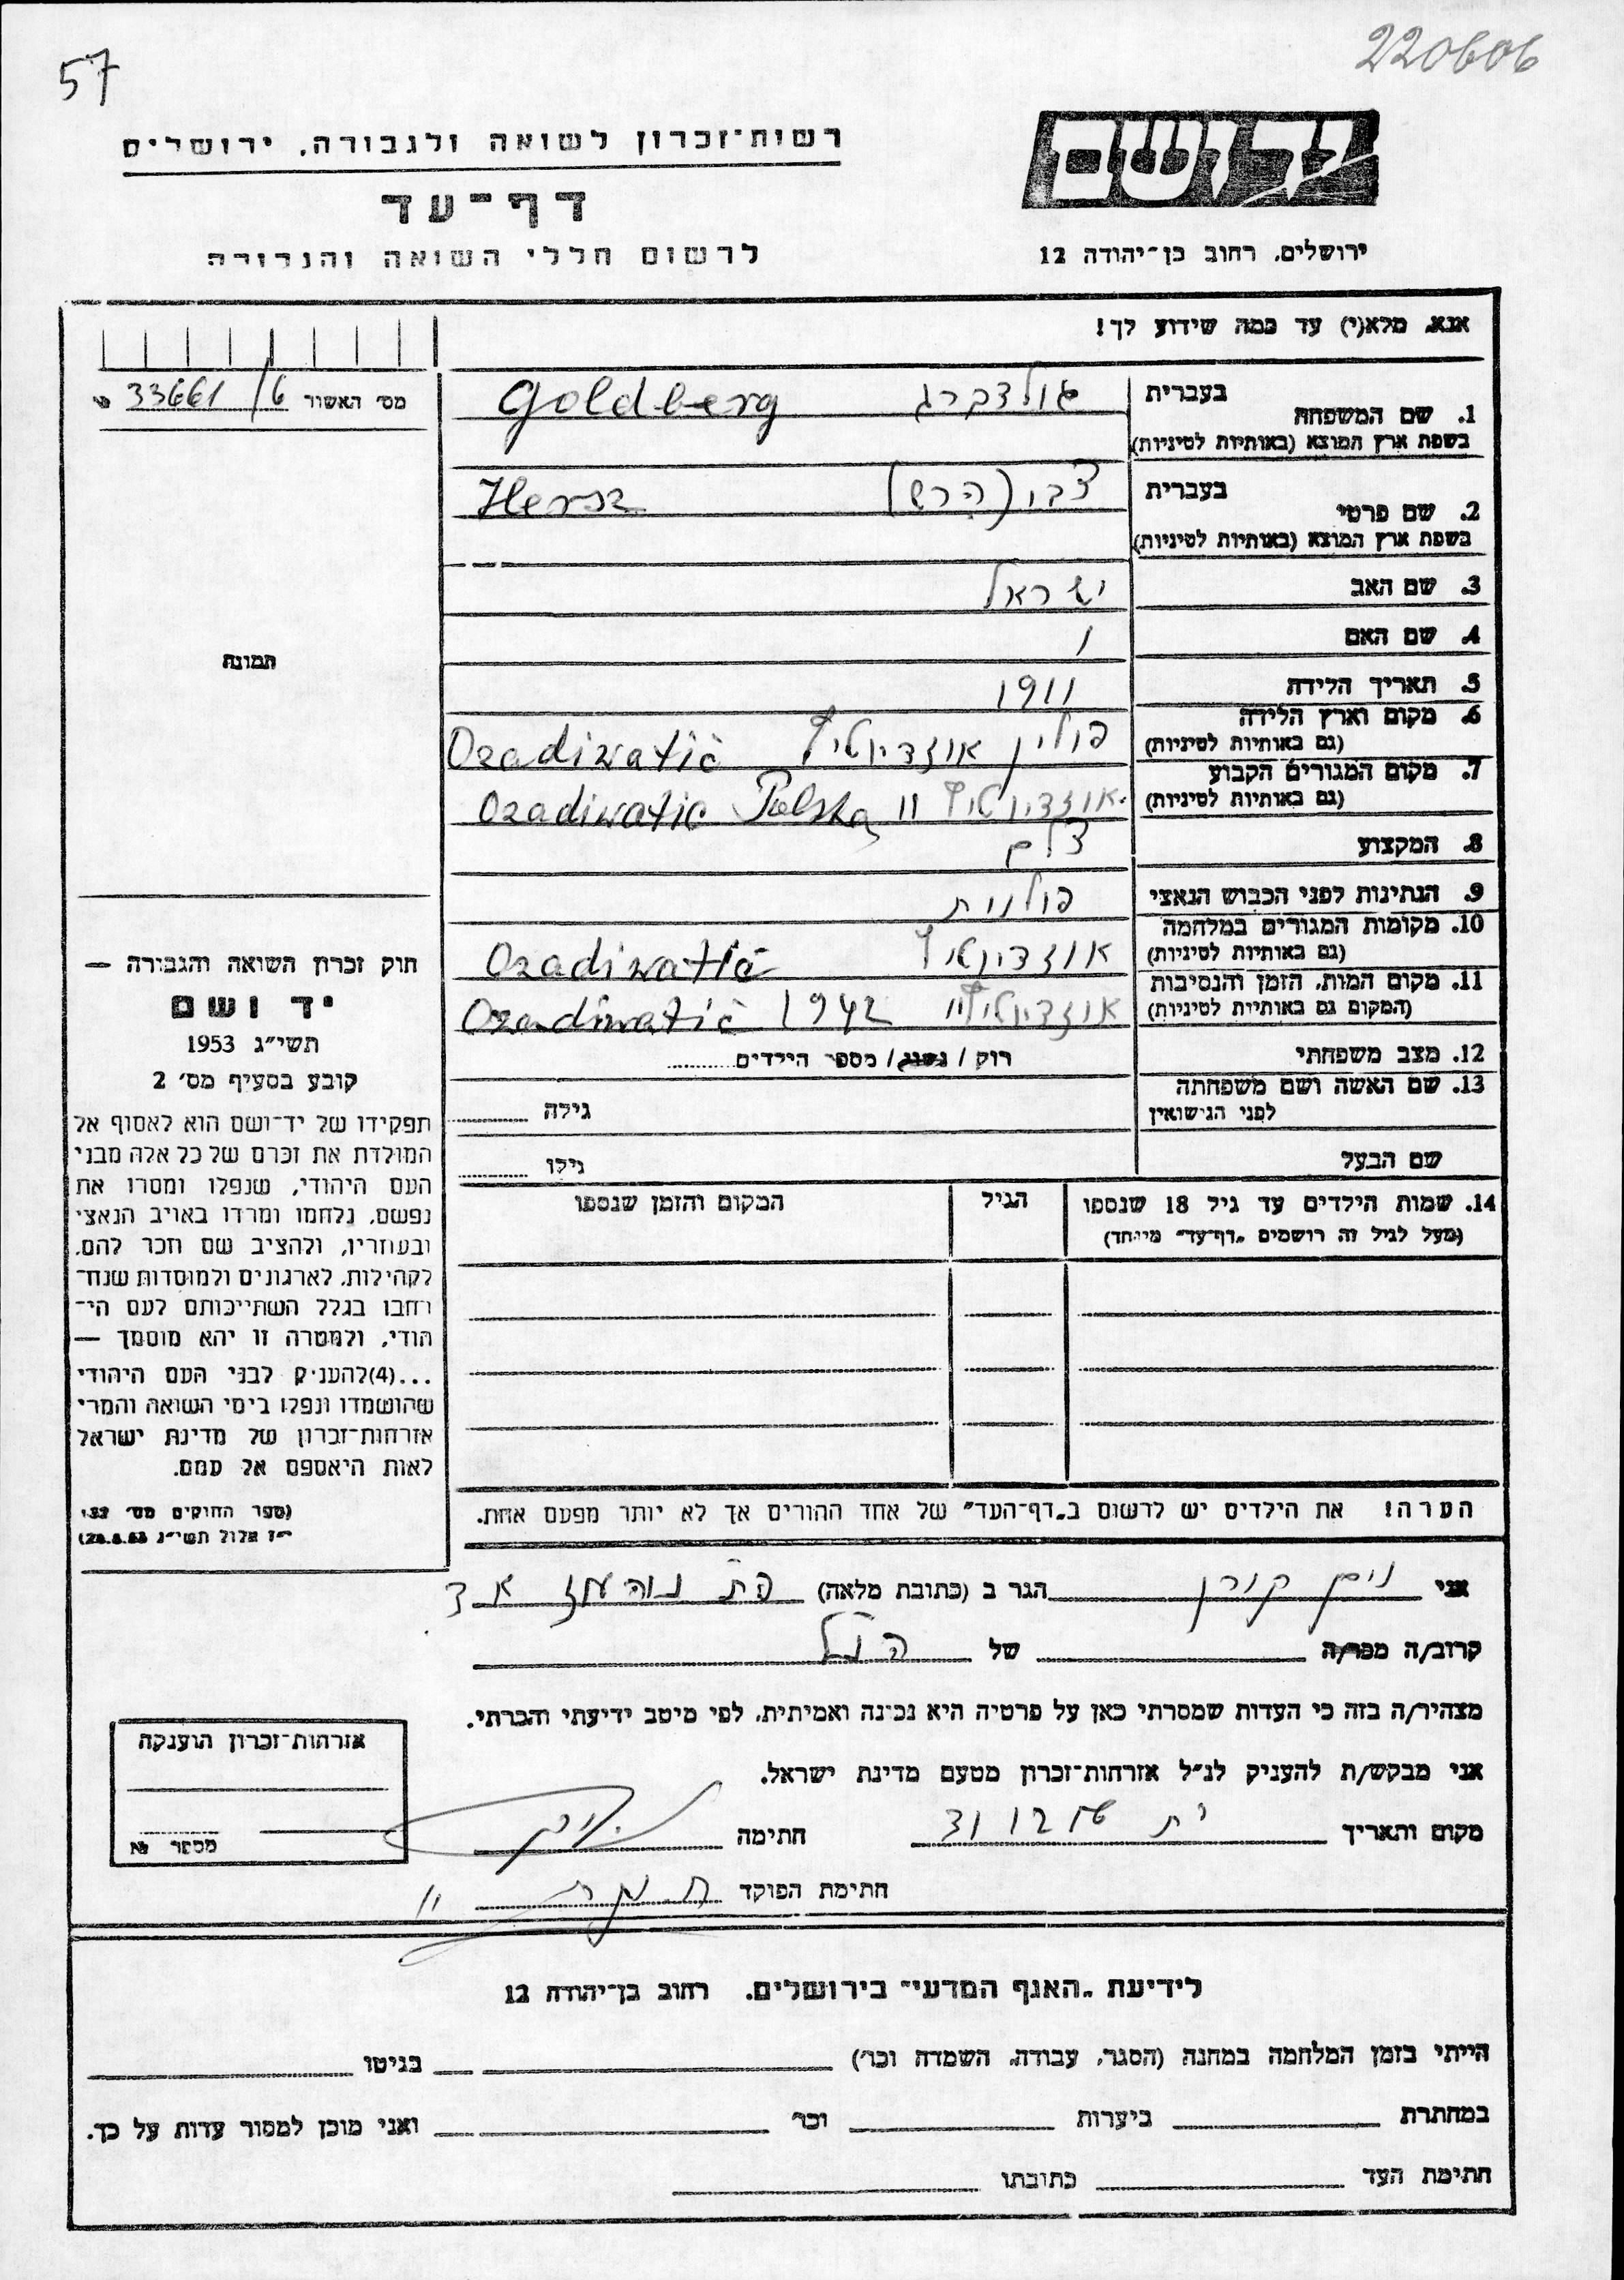 57
220606
רשות־זכרון לשואה ולגבורה, ירושלים
דף־עד
לרשום חללי השואה והגבורה
יד ושם
ירושלים, רחוב בן־יהודה 12
אנא, מלא(י) עד כמה שידוע לך!
מס׳ האשור 33661/6
תמונה
1. שם המשפחה בעברית גולדברג Goldberg
בשפת ארץ המוצא (באותיות לטיניות)
2. שם פרטי בעברית צבי (הרש) Hersz
בשפת ארץ המוצא (באותיות לטיניות)
3. שם האב ישראל
4. שם האם /
5. תאריך הלידה 1911
6. מקום וארץ הלידה פולין אוזדיוטיץ Ozadiwatič
(גם באותיות לטיניות)
7. מקום המגורים הקבוע אוזדיוטיץ " Ozadiwatic Polska
(גם באותיות לטיניות)
8. המקצוע צלם
9. הנתינות לפני הכבוש הנאצי פולנית
10. מקומות המגורים במלחמה אוזדיוטיץ Ozadiwatič
(גם באותיות לטיניות)
11. מקום המות, הזמן והנסיבות 1942 Ozadiwatič
(המקום גם באותיות לטיניות)
12. מצב משפחתי רוק / נשוי / מספר הילדים
13. שם האשה ושם משפחתה גילה
לפני הנישואין
שם הבעל גילו
14. שמות הילדים עד גיל 18 שנספו הגיל המקום והזמן שנספו
(מעל לגיל זה רושמים „דף־עד״ מיוחד)
חוק זכרון השואה והגבורה —
יד ושם
תשי״ג 1953
קובע בסעיף מס׳ 2
תפקידו של יד־ושם הוא לאסוף אל
המולדת את זכרם של כל אלה מבני
העם היהודי, שנפלו ומסרו את
נפשם, נלחמו ומרדו באויב הנאצי
ובעוזריו, ולהציב שם וזכר להם,
לקהילות, לארגונים ולמוסדות שנח־
רחבו בגלל השתייכותם לעם הי־
הודי, ולמטרה זו יהא מוסמך —
...(4)להעניק לבני העם היהודי
שהושמדו ונפלו בימי השואה והמרי
אזרחות־זכרון של מדינת ישראל
לאות היאספם אל עמם.
(ספר החוקים מס׳ 132,
י״ז אלול תשי״ג 28.8.53)
הערה! את הילדים יש לרשום ב„דף־העד״ של אחד ההורים אך לא יותר מפעם אחת.
אני קורן הגר ב (כתובת מלאה)
קרוב/ה מכר/ה של הנ״ל
מצהיר/ה בזה כי העדות שמסרתי כאן על פרטיה היא נכונה ואמיתית, לפי מיטב ידיעתי והכרתי.
אני מבקש/ת להעניק לנ״ל אזרחות־זכרון מטעם מדינת ישראל.
מקום ותאריך חתימה
חתימת הפוקד
אזרחות־זכרון הוענקה
מספר №
לידיעת „האגף המדעי״ בירושלים. רחוב בן־יהודה 12
הייתי בזמן המלחמה במחנה (הסגר, עבודה, השמדה וכו׳) בגיטו
במחתרת ביערות וכו׳ ואני מוכן למסור עדות על כך.
חתימת העד כתובתו